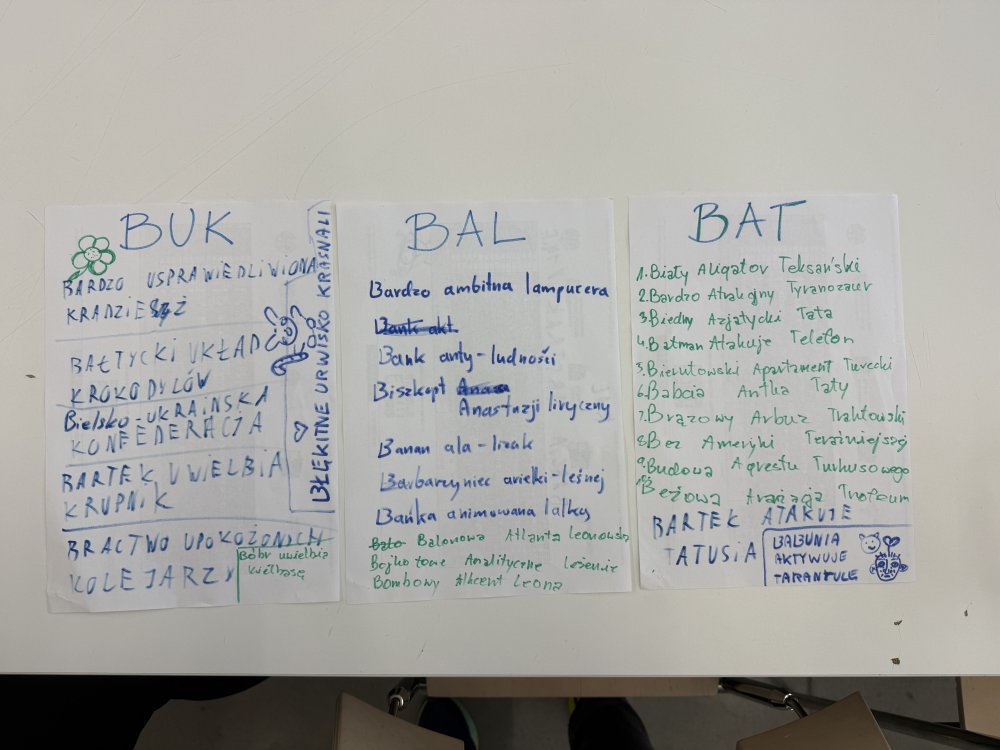 BUK
BARDZO USPRAWIEDLIWIONA
KRADZIEŻ
BAŁTYCKI UKŁAD
KROKODYLÓW
Bielsko-UKRAIŃSKA
KONFEDERACJA
BARTEK UWIELBIA
KRUPNIK
BRACTWO UPOKOŻONICH
KOLEJARZY
Bóbr uwielbia
kiełbasę
BŁĘKITNE URWISKO KRASNALI
BAL
Bardzo ambitna lampucera
Bank akt.
Bank anty-ludności
Biszkopt
Anastazji liryczny
Banan ala-lizak
Barbarzyniec arielki-leśnej
Bańka animowana lalką
Balonowa Atlanta Leonowska
Bojkotowe Analityczne Leżenie
Bombowy Akcent Leona
BAT
1. Biały Aligator Teksański
2. Bardzo Atrakcjny Tyranozaur
3. Biedny Azjatycki Tata
4. Batman Atakuje Telefon
5. Bierutowski Apartament Turecki
6. Babcia Antka Taty
7. Brązowy Arbuz Traktowski
8. Bez Ameryki Teraźniejszej
9. Budowa Agrestu Turkusowego
10. Beżowa Aranżacja Trofeum
BARTEK ATAKUJE
TATUSIA
BABUNIA
AKTYWUJE
TARANTULĘ